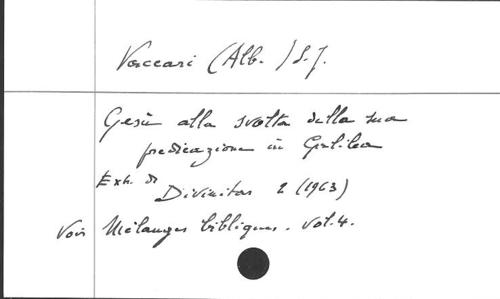 Vaccari (Alb.) S.J.
Gesù alla svolta della sua
predicazione in Galilea
Extr. de Divinitas 2 (1963)
Voir Mélanges bibliques. vol. 4.